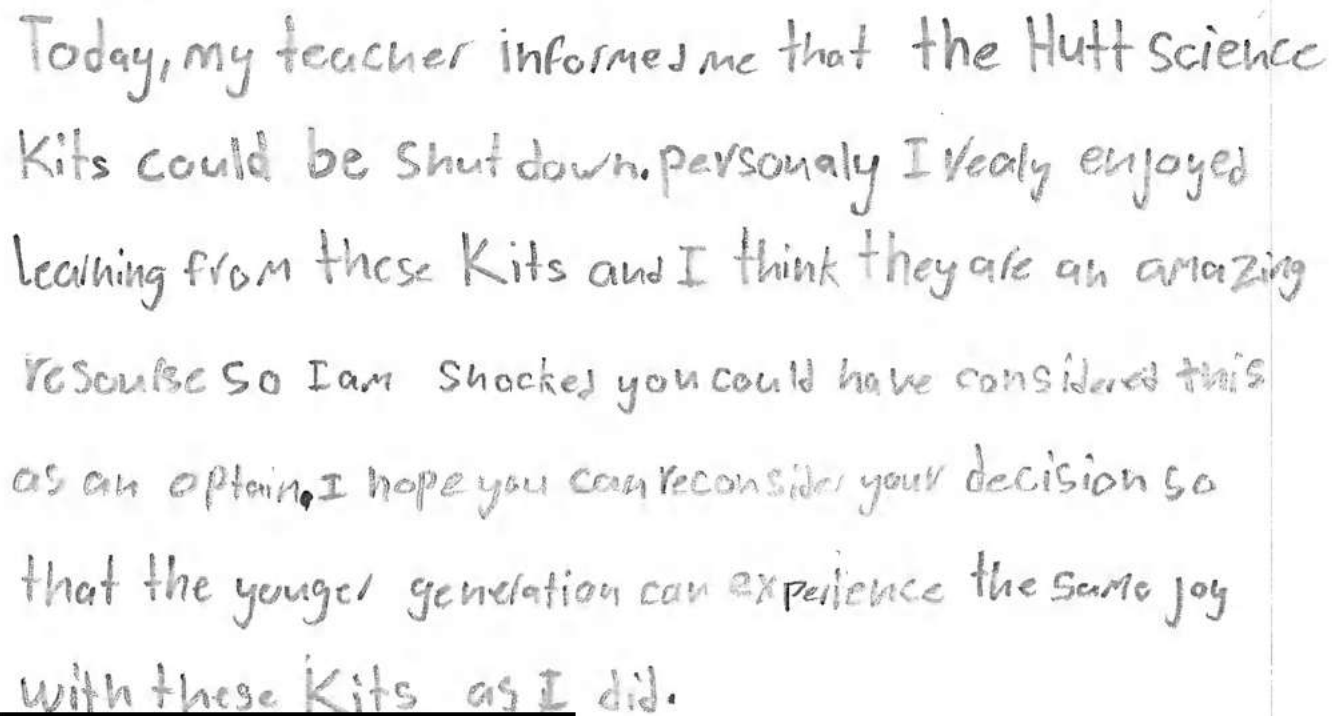 Today, my teacher informed me that the Hutt Science
Kits could be shut down. personaly I realy enjoyed
learning from these Kits and I think they are an amazing
resourse so I am shocked you could have considered this
as an optain. I hope you can reconsider your decision so
that the younger generation can experience the same joy
with these Kits as I did.